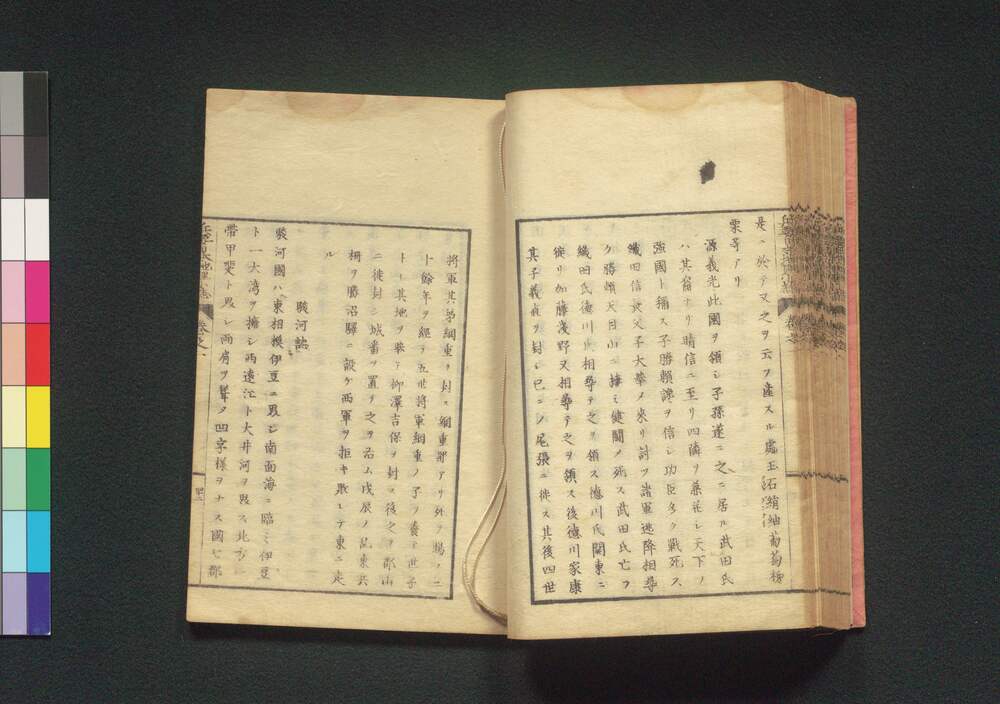 是ニ於テ又之ヲ云フ産スル處玉石絹紬葡萄柳
栗等アリ
源義光此國ヲ領シ子孫遂ニ之ニ居ル武田氏
ハ其裔ナリ晴信ニ至リ四隣ヲ兼并シ天下ノ
強國ト稱ス子勝賴讒ヲ信シ功臣多ク戰死ス
織田信長父子大擧ノ來リ討ツ諸軍逃降相尋
ク勝賴天目山ニ據ミ健鬪ノ死ス武田氏亡フ
織田氏德川氏相尋テ之ヲ領ス德川氏關東ニ
徙リ加藤淺野又相尋テ之ヲ領ス後德川家康
其子義直ヲ封シ已ニシノ尾張ニ徙ス其後四世
將軍其弟綱重ヲ封ス綱重罪アリ外ヲ賜フ二
十餘年ヲ經テ五世將軍綱重ノ子ヲ養テ世子
トシ其地ヲ收テ柳澤吉保ヲ封ス後之ヲ郡山
ニ徙封シ城番ヲ置テ之ヲ治ム戊辰ノ乱東兵
柵ヲ勝沼驛ニ設ケ西軍ヲ拒キ敗レテ東ニ走
ル
駿河誌
駿河國ハ東相模伊豆ニ界シ南面海ニ臨ミ伊豆
ト一大湾ヲ擁シ西遠江ト大井河ヲ界ス北方
帶甲斐ト界シ兩肩ヲ聳メ凹字樣ヲナス國七郡
卷之一